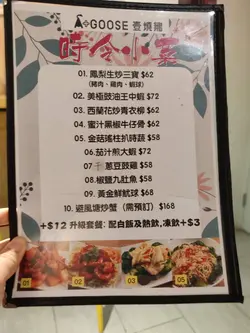 GOOSE 壹燒鵝
時令小菜
01. 鳳梨生炒三寶 $62
(豬肉、雞肉、蝦球)
02. 美極豉油王中蝦 $72
03. 西蘭花炒青衣柳 $62
04. 蜜汁黑椒牛仔骨 $62
05. 金菇瑤柱扒時蔬 $58
06. 茄汁煎大蝦 $72
07. 蔥豆豉雞 $58
08. 椒鹽九肚魚 $58
09. 黃金鮮魷球 $68
10. 避風塘炒蟹 (需預訂) $168
+$12 升級套餐: 配白飯及熱飲,凍飲+$3
01
02
07
05